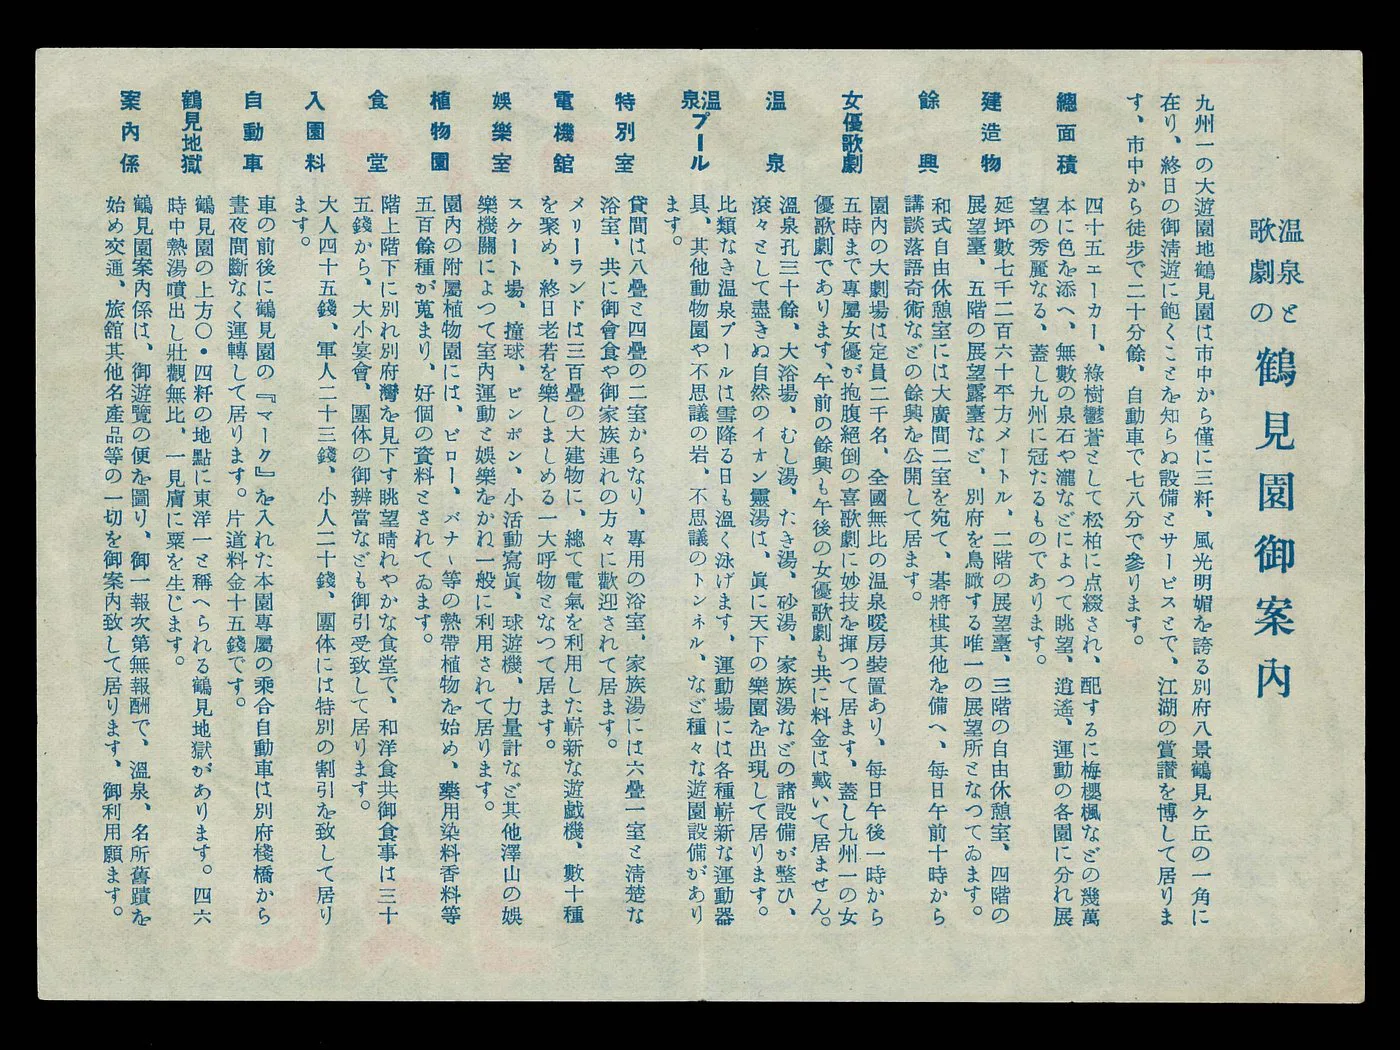 温泉と
歌劇の
鶴見園御案内
九州一の大遊園地鶴見園は市中から僅に三粁、風光明媚を誇る別府八景鶴見ケ丘の一角に
在り、終日の御清遊に飽くことを知らぬ設備とサービスとで、江湖の賞讃を博して居りま
す、市中から徒歩で二十分餘、自動車で七八分で參ります。
總面積
四十五エーカー、綠樹鬱蒼として松柏に点綴され、配するに梅櫻楓などの幾萬
本に色を添へ、無數の泉石や瀧などによつて眺望、逍遙、運動の各園に分れ展
望の秀麗なる、蓋し九州に冠たるものであります。
建造物
延坪數七千二百六十平方メートル、二階の展望臺、三階の自由休憩室、四階の
展望臺、五階の展望露臺など、別府を鳥瞰する唯一の展望所となつてゐます。
餘興
和式自由休憩室には大廣間二室を宛て、碁將棋其他を備へ、每日午前十時から
講談落語奇術などの餘興を公開して居ます。
女優歌劇
園內の大劇場は定員二千名、全國無比の温泉暖房裝置あり、每日午後一時から
五時まで專屬女優が抱腹絕倒の喜歌劇に妙技を揮つて居ます、蓋し九州一の女
優歌劇であります、午前の餘興も午後の女優歌劇も共に料金は戴いて居ません。
温泉
温泉孔三十餘、大浴場、むし湯、たき湯、砂湯、家族湯などの諸設備が整ひ、
滾々として盡きぬ自然のイオン靈湯は、眞に天下の樂園を出現して居ります。
温泉プール
比類なき温泉プールは雪降る日も温く泳げます、運動場には各種嶄新な運動器
具、其他動物園や不思議の岩、不思議のトンネル、など種々な遊園設備があり
ます。
特別室
貸間は八疊と四疊の二室からなり、專用の浴室、家族湯には六疊一室と淸楚な
浴室、共に御會食や御家族連れの方々に歡迎されて居ます。
電機舘
メリーランドは三百疊の大建物に、總て電氣を利用した嶄新な遊戱機、數十種
を聚め、終日老若を樂しましめる一大呼物となつて居ます。
娛樂室
スケート場、撞球、ピンポン、小活動寫眞、球遊機、力量計など其他澤山の娛
樂機關によつて室內運動と娛樂をかね一般に利用されて居ります。
植物園
園內の附屬植物園には、ビロー、バナヽ等の熱帶植物を始め、藥用染料香料等
五百餘種が蒐まり、好個の資料とされてゐます。
食堂
階上階下に別れ別府灣を見下す眺望晴れやかな食堂で、和洋食共御食事は三十
五錢から、大小宴會、團体の御辨當なども御引受致して居ります。
入園料
大人四十五錢、軍人二十三錢、小人二十錢、團体には特別の割引を致して居り
ます。
自動車
車の前後に鶴見園の『マーク』を入れた本園專屬の乘合自動車は別府棧橋から
晝夜間斷なく運轉して居ります。片道料金十五錢です。
鶴見地獄
鶴見園の上方〇・四粁の地點に東洋一と稱へられる鶴見地獄があります。四六
時中熱湯噴出し壯觀無比、一見膚に粟を生じます。
案內係
鶴見園案內係は、御遊覽の便を圖り、御一報次第無報酬で、温泉、名所舊蹟を
始め交通、旅舘其他名產品等の一切を御案內致して居ります、御利用願ます。